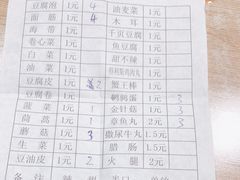 豆腐泡 1元 4 油麦菜 1元
面筋 1元 4 木耳 1元
海带 1元 千页豆腐 1元
卷心菜 1元 鱼豆腐 1元
白菜 1元 甜不辣 1元
油菜 1元 1元
豆腐皮 1元 蟹王棒 1元
豆腐卷 1元 鹌鹑蛋 1元 3
菠菜 1元 1 金针菇 1元 3
茼蒿 1元 章鱼丸 2元 3
蘑菇 1元 3 撒尿牛丸 1.5元
生菜 1元 腊肠 1.5元
豆油皮 1元 2 火腿 2元
备注